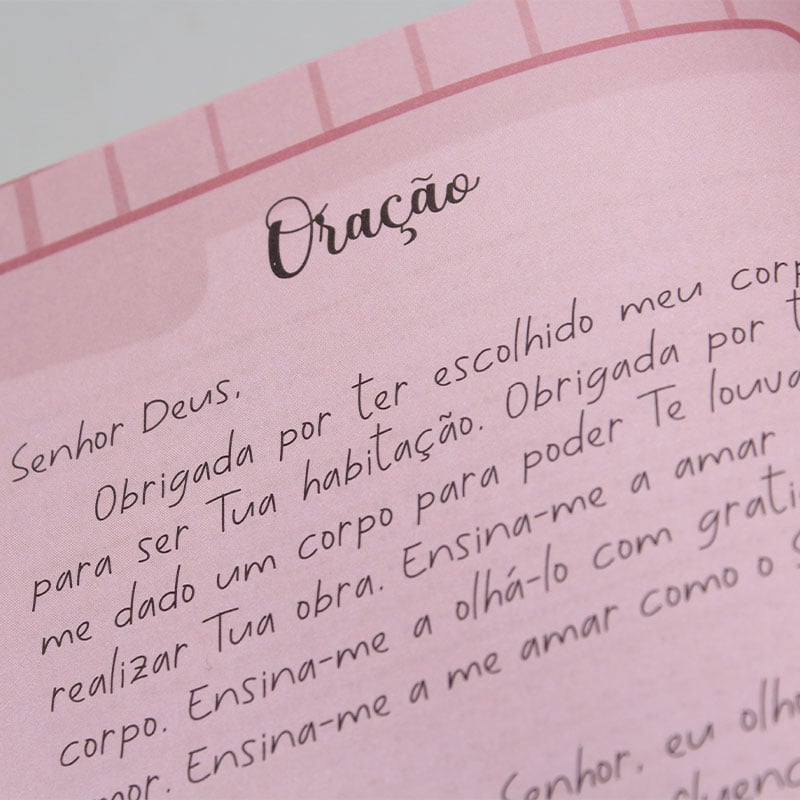 Oração
Senhor Deus,
Obrigada por ter escolhido meu corp
para ser Tua habitação. Obrigada por t
me dado um corpo para poder Te louva
realizar Tua obra. Ensina-me a amar
corpo. Ensina-me a olhá-lo com grati
mor. Ensina-me a me amar como o S
Senhor, eu olho